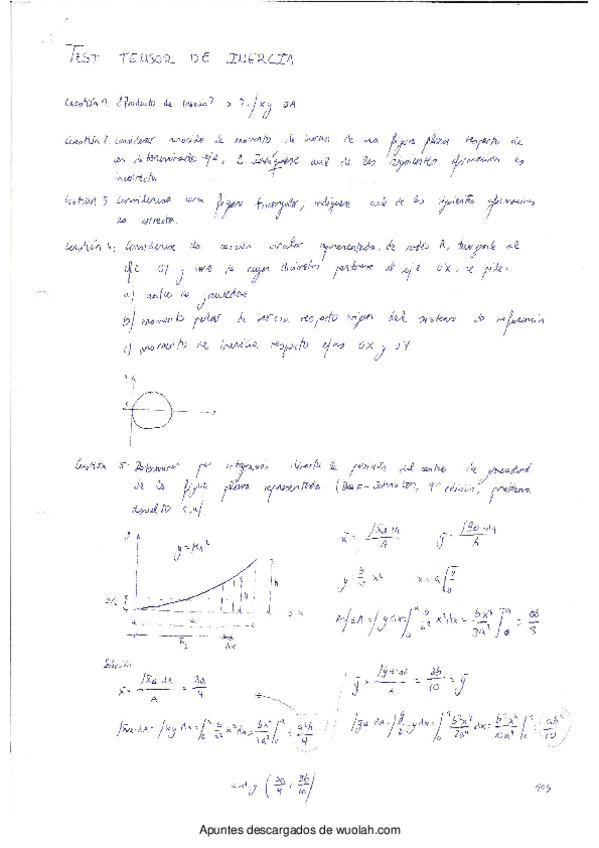 TEST TENSOR DE INERCIA
Cuestión 1. ¿Producto de inercia? ∫xy dA
Cuestión 2. Considerar momento de inercia de una figura plana respecto de
un determinado eje, indíquese cual de las siguientes afirmaciones es
incorrecta
Cuestión 3 Considerese una figura triangular, indíquese cual de las siguientes afirmaciones
es correcta.
Cuestión 4: Considerese la sección circular representada, de radio R, tangente al
eje OY y uno de cuyos diámetros pertenece al eje OX, se pide:
a) centro de gravedad
b) momento polar de inercia respecto origen del sistema de referencia
c) momento de inercia respecto ejes OX y OY
Cuestión 5. Determinar por integración directa la posición del centro de gravedad
de la figura plana representada (Beer-Johnston, 9ª edición, problema
resuelto 5.4)
y=kx²
x̄ = ∫x̄ₑ dA / A
y = b/a² x²
A=∫dA=∫y dx=∫₀ᵃ b/a² x² dx = bx³/3a² ]₀ᵃ = ab/3
Solución
x̄ = ∫x̄ₑ dA / A = 3a/4
= 3b/10 = ȳ
∫x̄ₑ dA = ∫xy dx = = a²b/4
= ab²/10
(3a/4, 3b/10)
Apuntes descargados de wuolah.com